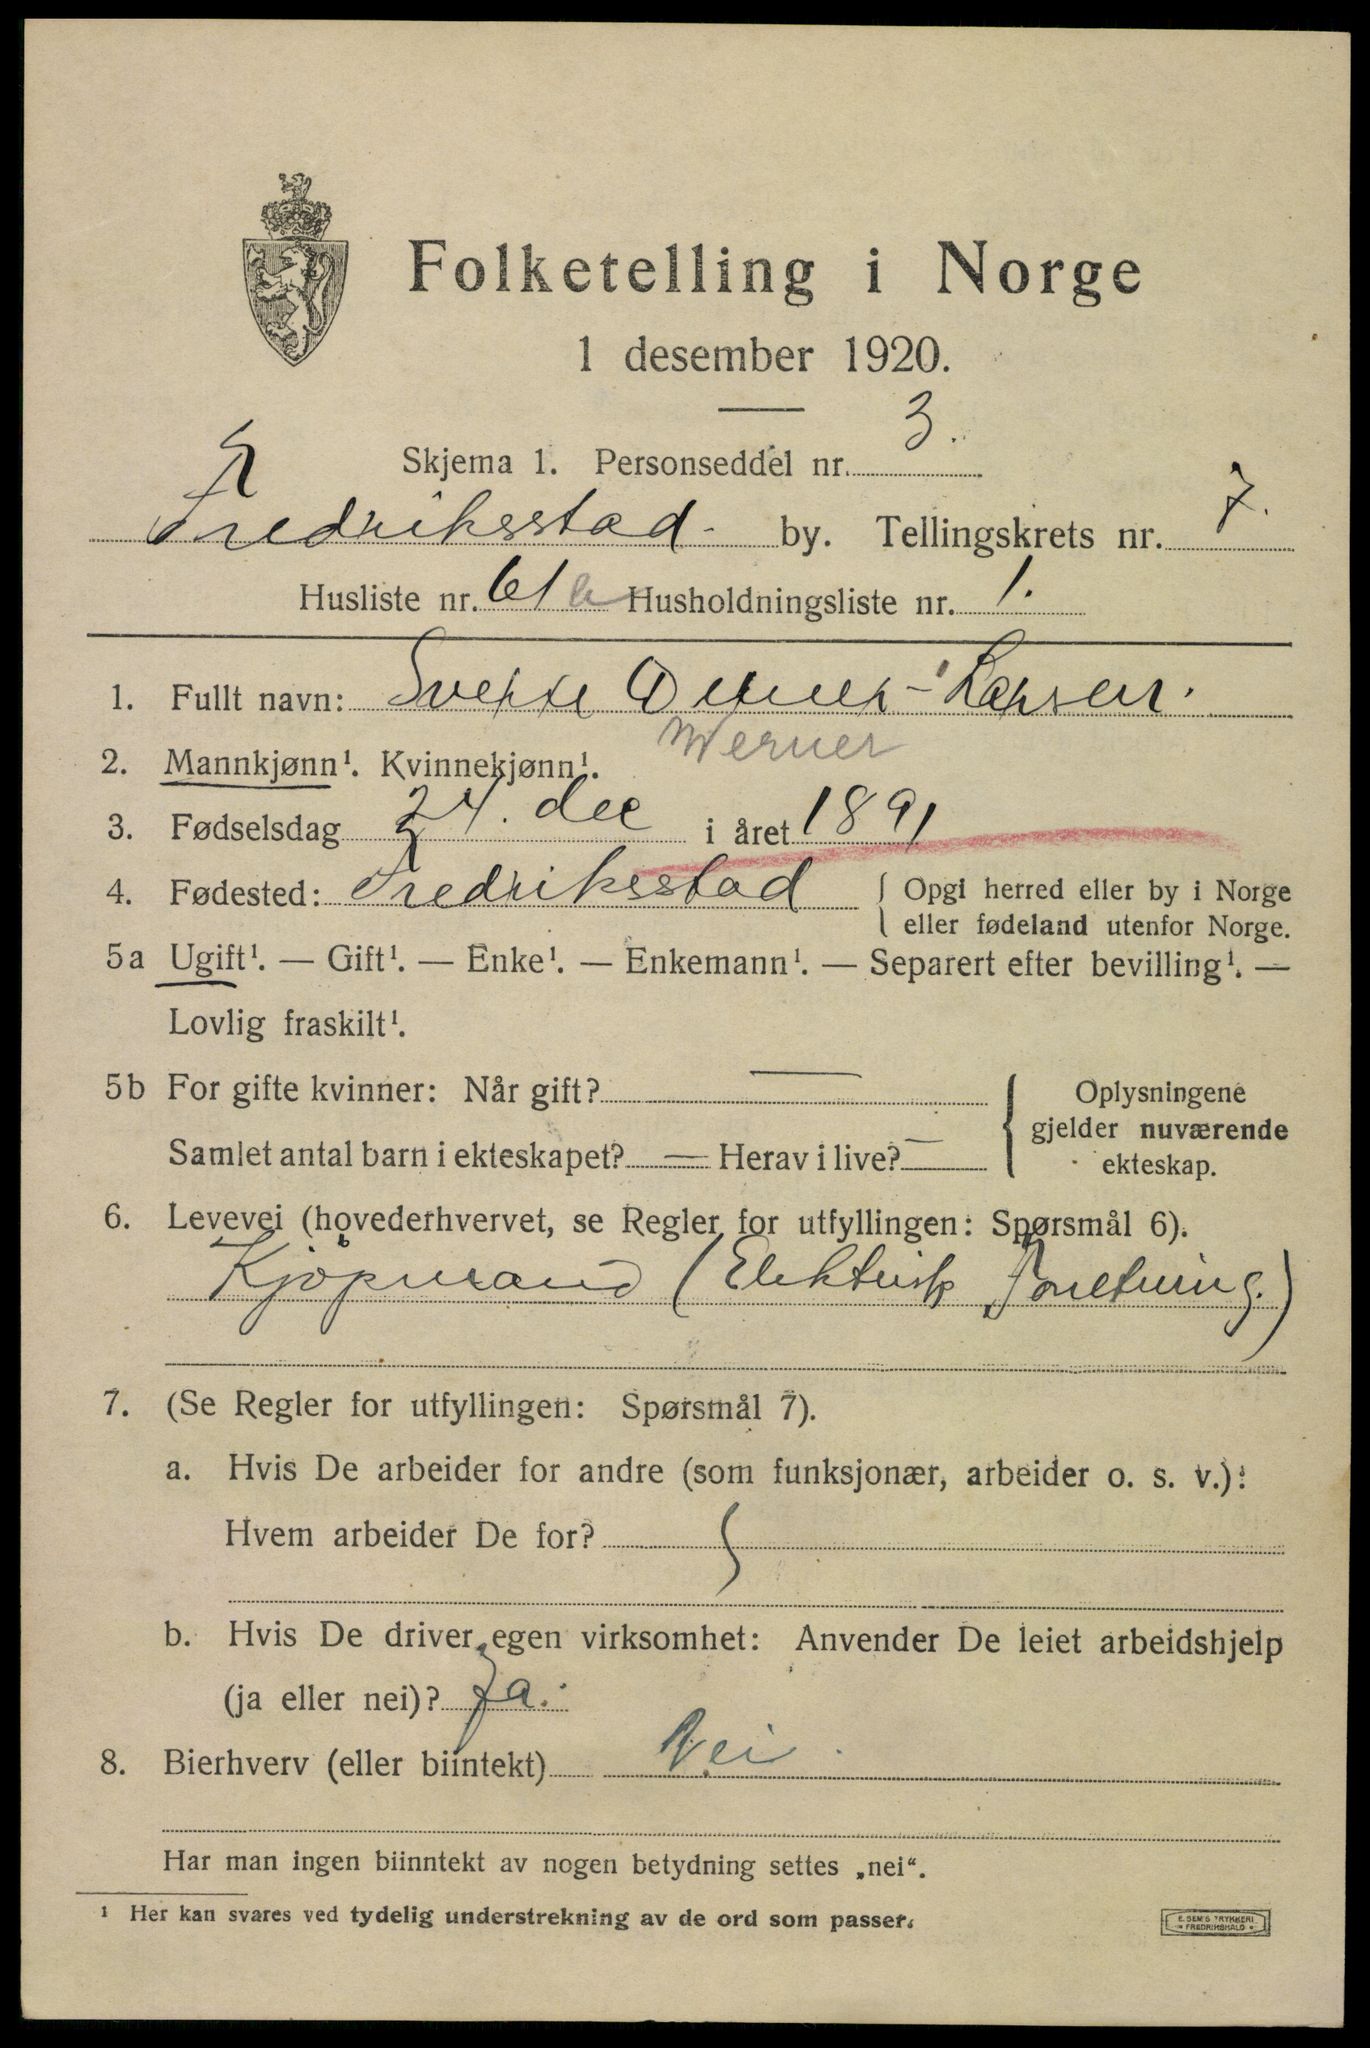 Folketelling i Norge
1 desember 1920.
Skjema 1. Personseddel nr. 3.
Fredriksstad by. Tellingskrets nr. 7.
Husliste nr. 61 Husholdningsliste nr. 1.
1. Fullt navn: Sverre Werner-Larsen.
Werner
2. Mannkjønn¹. Kvinnekjønn¹.
3. Fødselsdag 24. dec i året 1891
4. Fødested: Fredriksstad { Opgi herred eller by i Norge
eller fødeland utenfor Norge.
5a Ugift¹. — Gift¹. — Enke¹. — Enkemann¹. — Separert efter bevilling¹. —
Lovlig fraskilt¹.
5b For gifte kvinner: Når gift? —
Samlet antal barn i ekteskapet? — Herav i live? —
{ Oplysningene
gjelder nuværende
ekteskap.
6. Levevei (hovederhvervet, se Regler for utfyllingen: Spørsmål 6).
Kjøpmand (Elektrisk Forretning.)
7. (Se Regler for utfyllingen: Spørsmål 7).
a. Hvis De arbeider for andre (som funksjonær, arbeider o. s. v.):
Hvem arbeider De for?
b. Hvis De driver egen virksomhet: Anvender De leiet arbeidshjelp
(ja eller nei)? Ja.
8. Bierhverv (eller biintekt) Nei
Har man ingen biinntekt av nogen betydning settes „nei“.
¹ Her kan svares ved tydelig understrekning av de ord som passer.
E. SEM'S TRYKKERI
FREDRIKSHALD